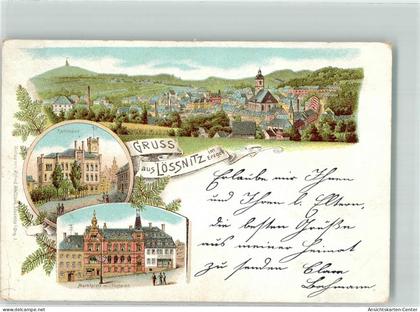 GRUSS
aus LÖSSNITZ
i. Erzgeb.
Erlaube mir Ihnen
und Ihren l. Eltern,
die besten Grüße
aus meiner Heimat
zu senden Clara
Bachmann
Marktplatz
Ansichtskarten-Center